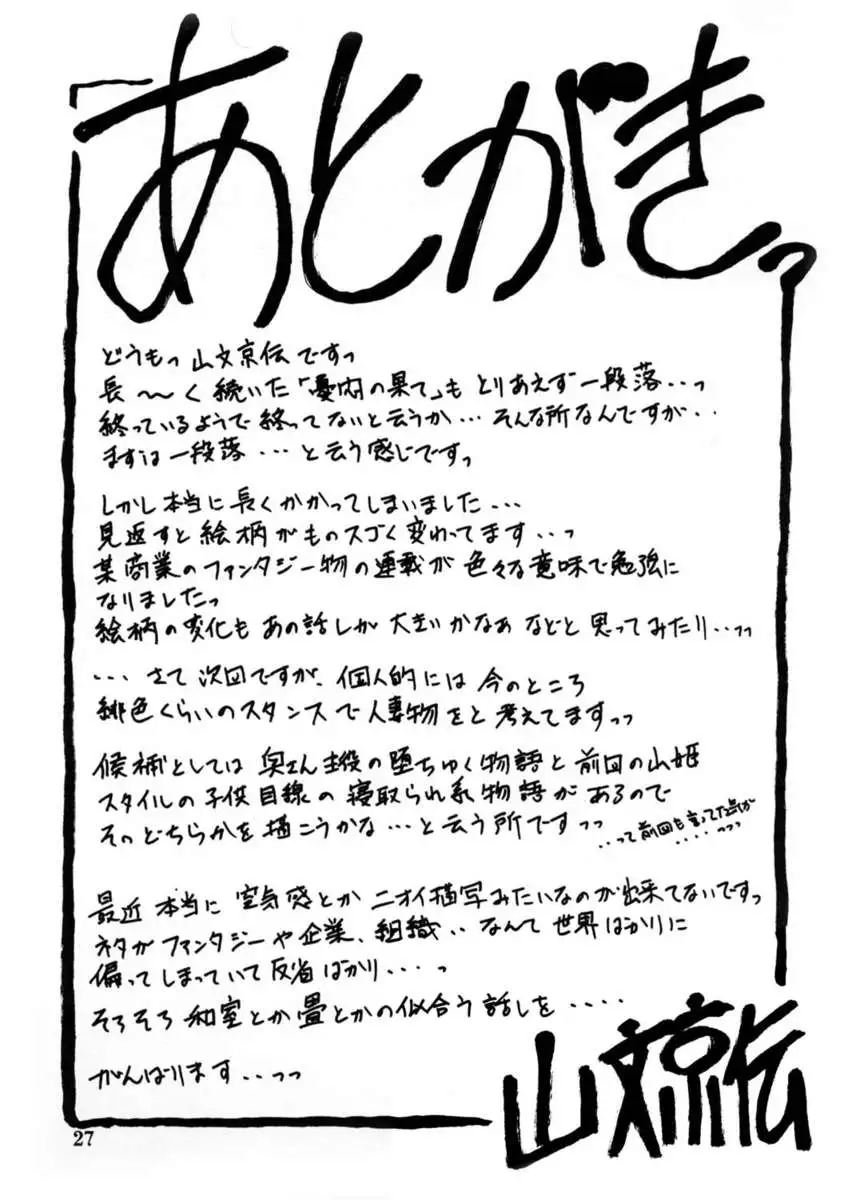 あとがきっ
どうもっ山文京伝ですっ
長〜く続いた「憂内の果て」もとりあえず一段落‥っ
終っているようで終ってないと云うか…そんな所なんですが‥
まずは一段落…と云う感じですっ
しかし本当に長くかかってしまいました…
見返すと絵柄がものスゴく変わってます‥っ
某商業のファンタジー物の連載が色々な意味で勉強に
なりましたっ
絵柄の変化もあの話しが大きいかなあなどと思ってみたり‥っっ
…さて次回ですが、個人的には今のところ
緋色くらいのスタンスで人妻物をと考えてますっっ
候補としては奥さん主役の堕ちゆく物語と前回の山姫
スタイルの子供目線の寝取られ系物語があるので
そのどちらかを描こうかな…と云う所ですっっ
‥って前回も言ってた気が
‥‥っっ
最近本当に空気感とかニオイ描写みたいなのが出来てないですっ
ネタがファンタジーや企業、組織‥なんて世界ばかりに
偏ってしまっていて反省ばかり‥‥っ
そろそろ和室とか畳とかの似合う話しを‥‥
がんばります‥っっ
山文京伝
27